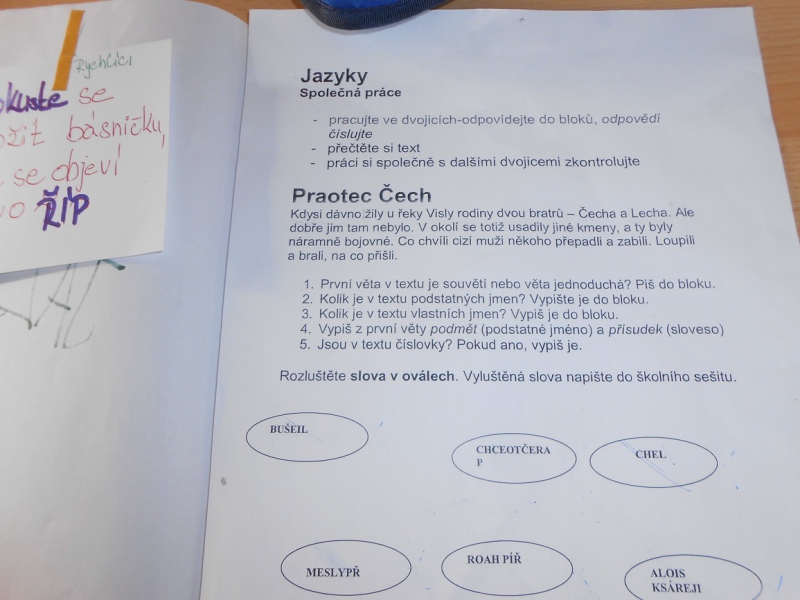 Rychlíci
se
básničku,
se objeví
ŘÍP
Jazyky
Společná práce
- pracujte ve dvojicích-odpovídejte do bloků, odpovědi
číslujte
- přečtěte si text
- práci si společně s dalšími dvojicemi zkontrolujte
Praotec Čech
Kdysi dávno žily u řeky Visly rodiny dvou bratrů – Čecha a Lecha. Ale
dobře jim tam nebylo. V okolí se totiž usadily jiné kmeny, a ty byly
náramně bojovné. Co chvíli cizí muži někoho přepadli a zabili. Loupili
a brali, na co přišli.
1. První věta v textu je souvětí nebo věta jednoduchá? Piš do bloku.
2. Kolik je v textu podstatných jmen? Vypište je do bloku.
3. Kolik je v textu vlastních jmen? Vypiš je do bloku.
4. Vypiš z první věty podmět (podstatné jméno) a přísudek (sloveso)
5. Jsou v textu číslovky? Pokud ano, vypiš je.
Rozluštěte slova v oválech. Vyluštěná slova napište do školního sešitu.
BUŠEIL
CHCEOTČERA
P
CHEL
MESLYPŘ
ROAH PÍŘ
ALOIS
KSÁREJI